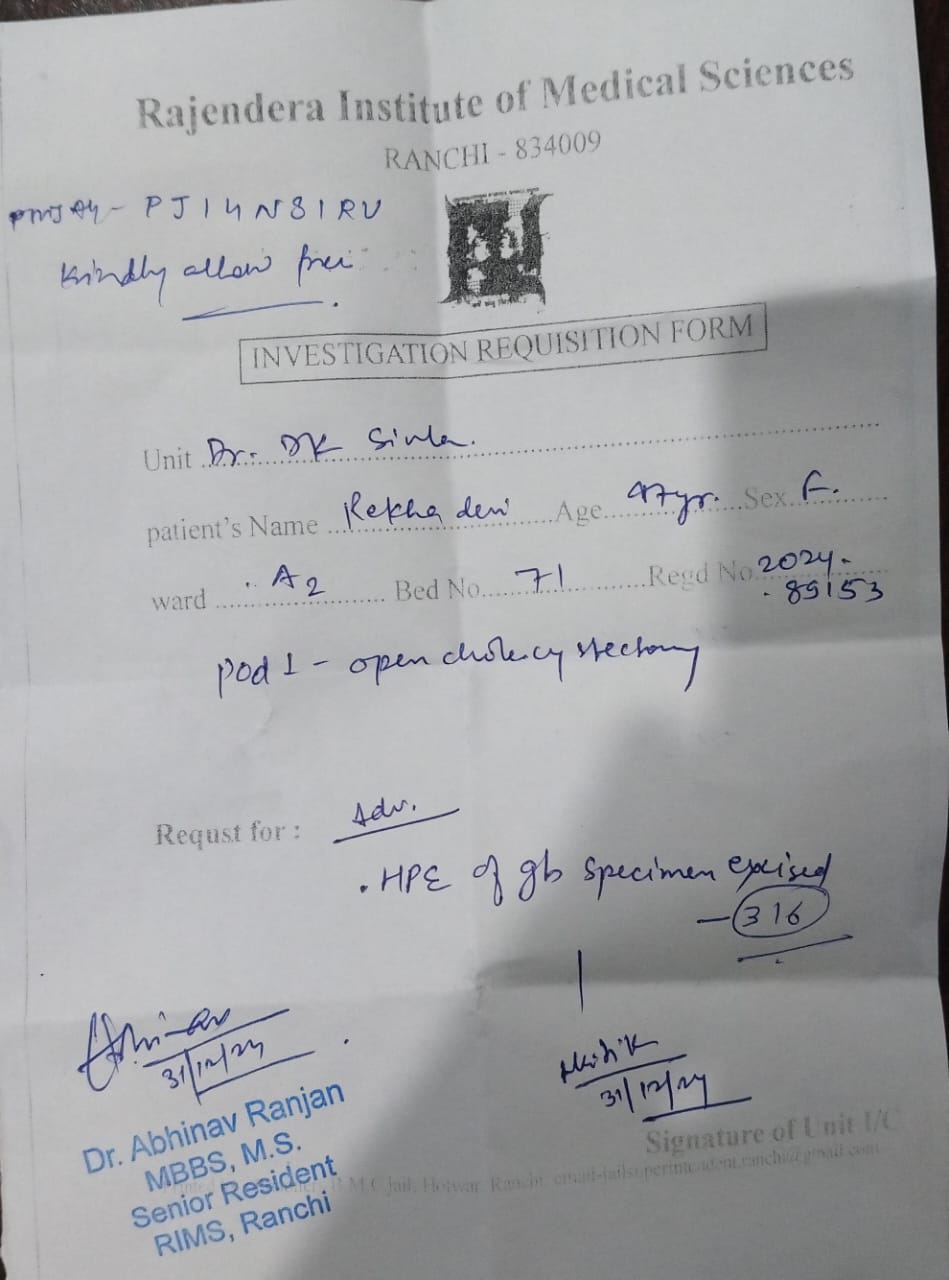 Rajendera Institute of Medical Sciences
RANCHI - 834009
PMJAY - PJ14N81RU
Kindly allow free
INVESTIGATION REQUISITION FORM
Unit Dr. DK Sinha.
patient's Name Rekha devi Age 47yr. Sex F.
ward A2 Bed No. 71 Regd No 2024-
89153
Pod 1 - open cholecystectomy
Requst for : Adv.
. HPE of gb specimen excised
- 316
Abhinav
31/12/24
31/12/24
Dr. Abhinav Ranjan
MBBS, M.S.
Senior Resident
RIMS, Ranchi
Signature of Unit I/C
Jail, Hotwar, Ranchi, email-jailsuperintendent.ranchi@gmail.com